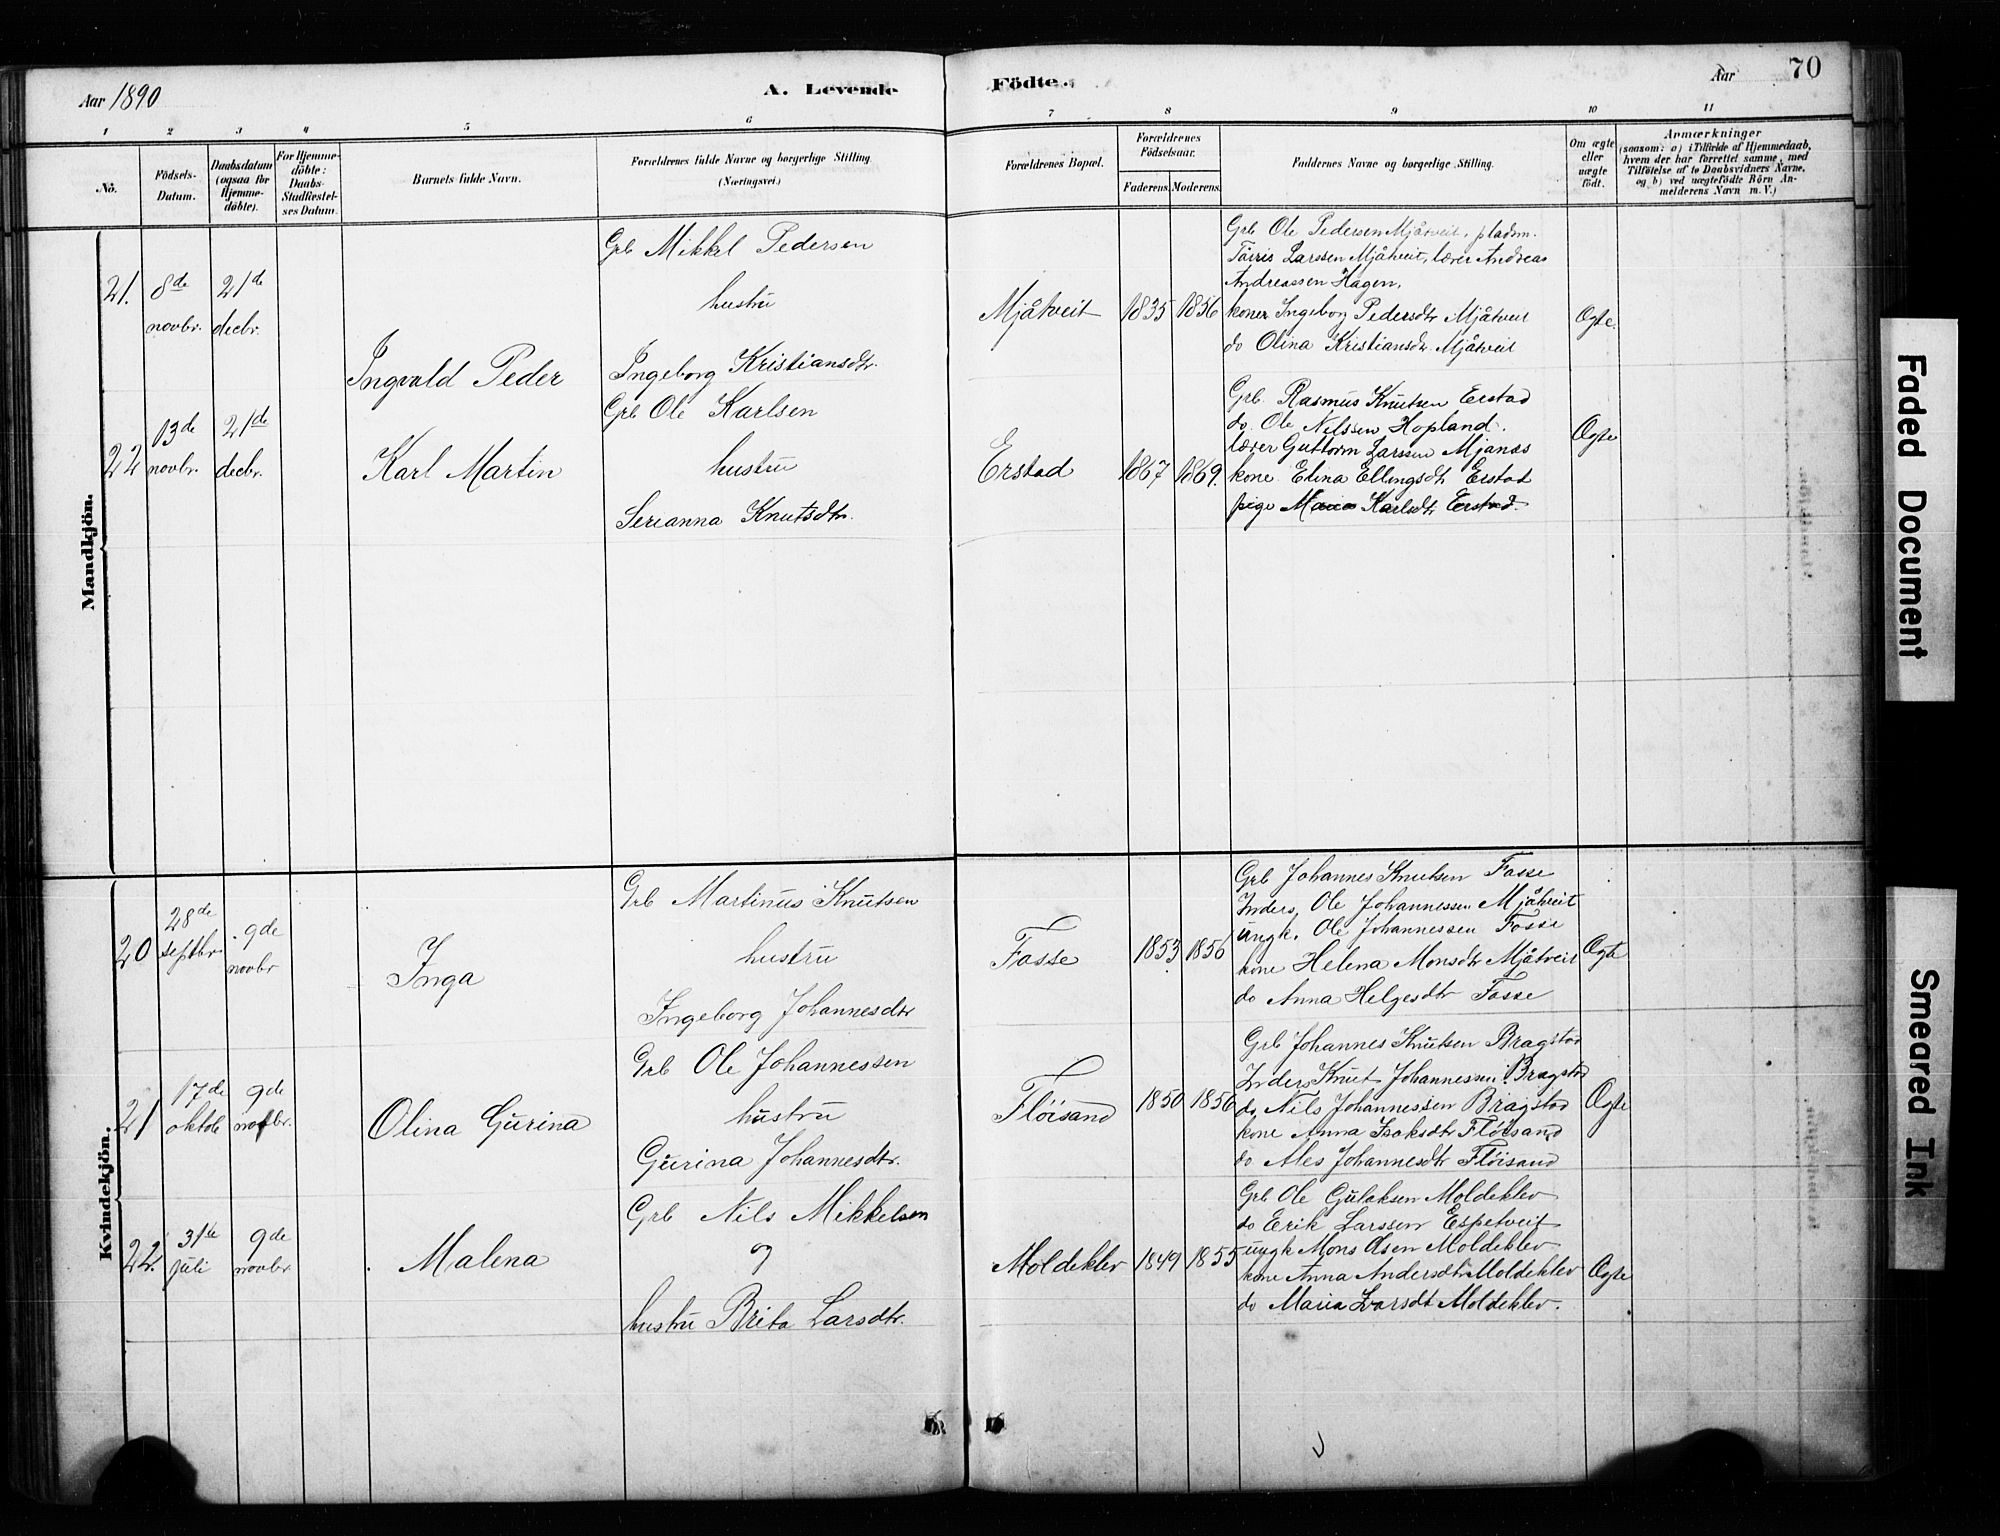 Aar 1890
A. Levende
Födte.
Aar
70
1 2 3 4 5 6 7 8 9 10 11
No.
Födsels-
Datum.
Daabsdatum
(ogsaa for
Hjemme-
döbte).
For Hjemme-
döbte:
Daabs-
Stadfæstel-
ses Datum.
Barnets fulde Navn.
Forældrenes fulde Navne og borgerlige Stilling.
(Næringsvei.)
Forældrenes Bopæl.
Forældrenes
Födselsaar.
Faderens. Moderens.
Faddernes Navne og borgerlige Stilling.
Om ægte
eller
uægte
födt.
Anmærkninger
(saasom: a) i Tilfælde af Hjemmedaab,
hvem der har forrettet samme, med
Tilföielse af to Daabsvidners Navne,
og b) ved uægtefödte Börn An-
melderens Navn m. V.)
Mandkjön.
21.
8de
novbr.
21de
decbr.
Ingvald Peder
Grb Mikkel Pedersen
hustru
Ingeborg Kristiansdtr.
Mjåtveit
1835
1856
Grb Ole Pedersen Mjåtveit, pladsm.
Larssen Mjåtveit, lærer Andreas
Andreassen Hagen,
koner Ingeborg Pedersdtr Mjåtveit
do Olina Kristiansdtr. Mjåtveit
Ægte.
22
13de
novbr.
21de
decbr.
Karl Martin
Grb Ole Karlsen
hustru
Serianna Knutsdtr.
Erstad
1867
1869.
Grb. Rasmus Knutsen Erstad
do. Ole Nilssen Hopland.
lærer Guttorm Larssen Mjanæs
kone Elina Ellingsdtr Erstad
pige Maria Karlsdtr Erstad.
Ægte
Kvindekjön.
20
28de
septbr
9de
novbr
Inga
Grb Martinus Knutsen
hustru
Ingeborg Johannesdtr
Fosse
1853
1856
Grb Johannes Knutsen Fosse
Inders. Ole Johannessen Mjåtveit
ungk. Ole Johannessen Fosse
kone Helena Monsdtr Mjåtveit
do Anna Helgesdtr Fosse
Ægte
21
17de
oktob
9de
novbr.
Olina Gurina
Grb Ole Johannessen
hustru
Gurina Johannesdtr.
Flöisand
1850
1856
Grb Johannes Knutsen Bragstad
Inders Knut Johannessen Bragstad
do Nils Johannessen Bragstad
kone Anna Isaksdtr Flöisand
do Ales Johannesdtr Flöisand
Ægte
22.
31te
juli
9de
novbr
Malena
Grb Nils Mikkelsen
og
hustru Brita Larsdtr.
Moldeklev
1849
1855
Grb Ole Gulaksen Moldeklev
do Erik Larssen Espetveit
ungk Mons Olsen Moldeklev
kone Anna Andersdtr Moldeklev
do Maria Ivarsdtr Moldeklev.
Ægte
Faded Document
Smeared Ink